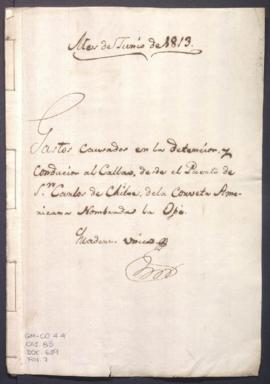 Mes de Junio de 1813.
Gastos causados en la detencion, y
conducion al Callao, desde el Puerto de
S.n Carlos de Chiloe, de la Corveta Ame-
ricana Nombrada la Ope.
Quaderno unico
GM-CO 4.4
CAJ. 85
DOC. 659
FOL. 7